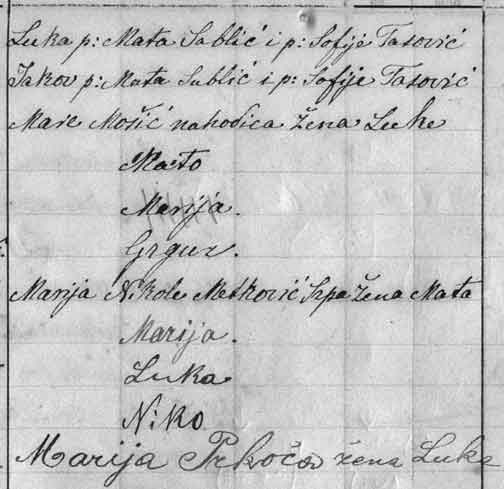 Luka p: Mata Sablić i p: Sofije Tasović
Jakov p: Mata Sablić i p: Sofije Tasović
Mare Mošić nahodica žena Luke
Mato
Marija.
Grgur.
Marija Nikole Metković žena Mata
Marija.
Luka
Niko
Marija Prkočo žena Luke